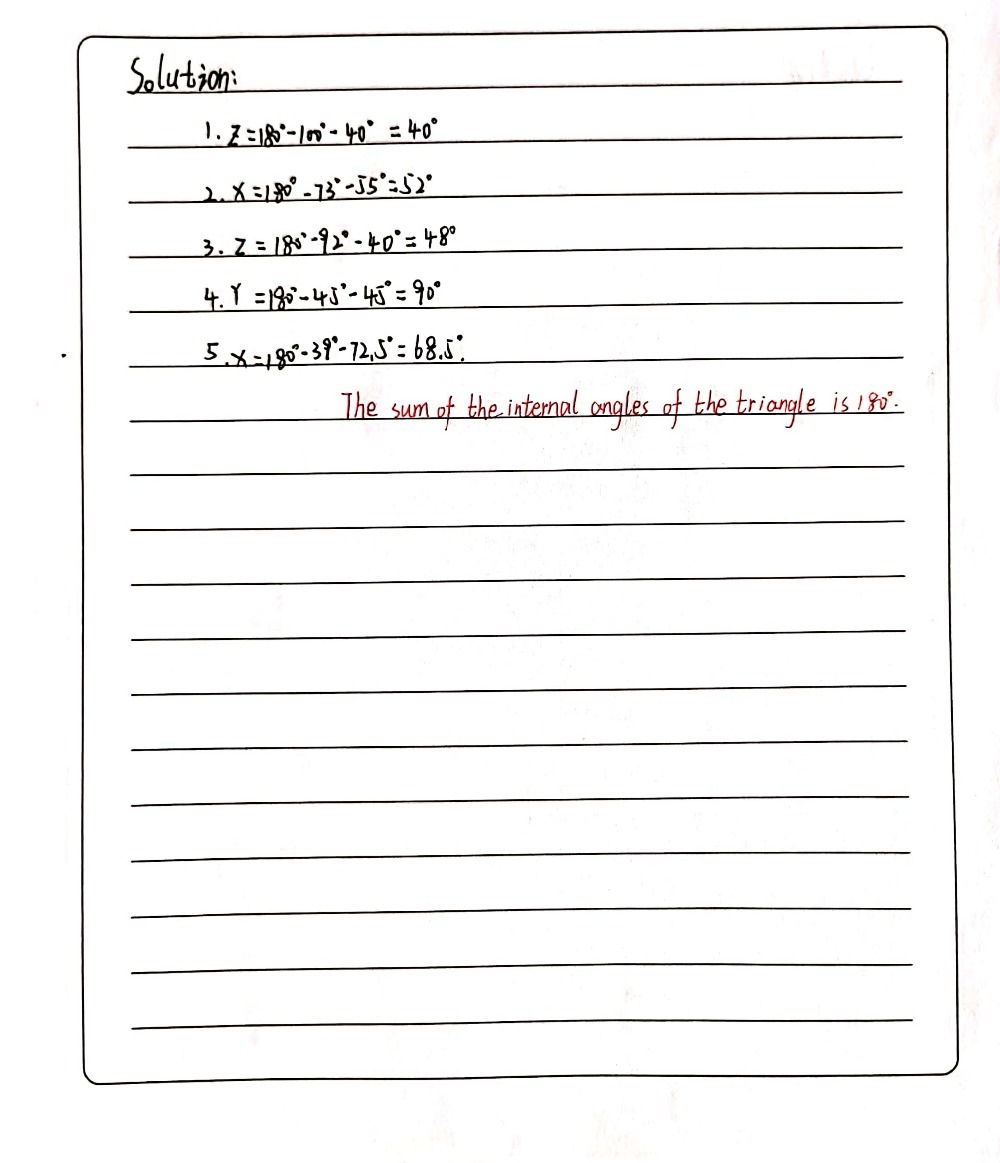 Solution:
1. Z=180°-100°-40° =40°
2. X=180°-73°-55°=52°
3. Z=180°-92°-40°=48°
4. Y=180°-45°-45°=90°
5. X=180°-39°-72.5°=68.5°.
The sum of the internal angles of the triangle is 180°.